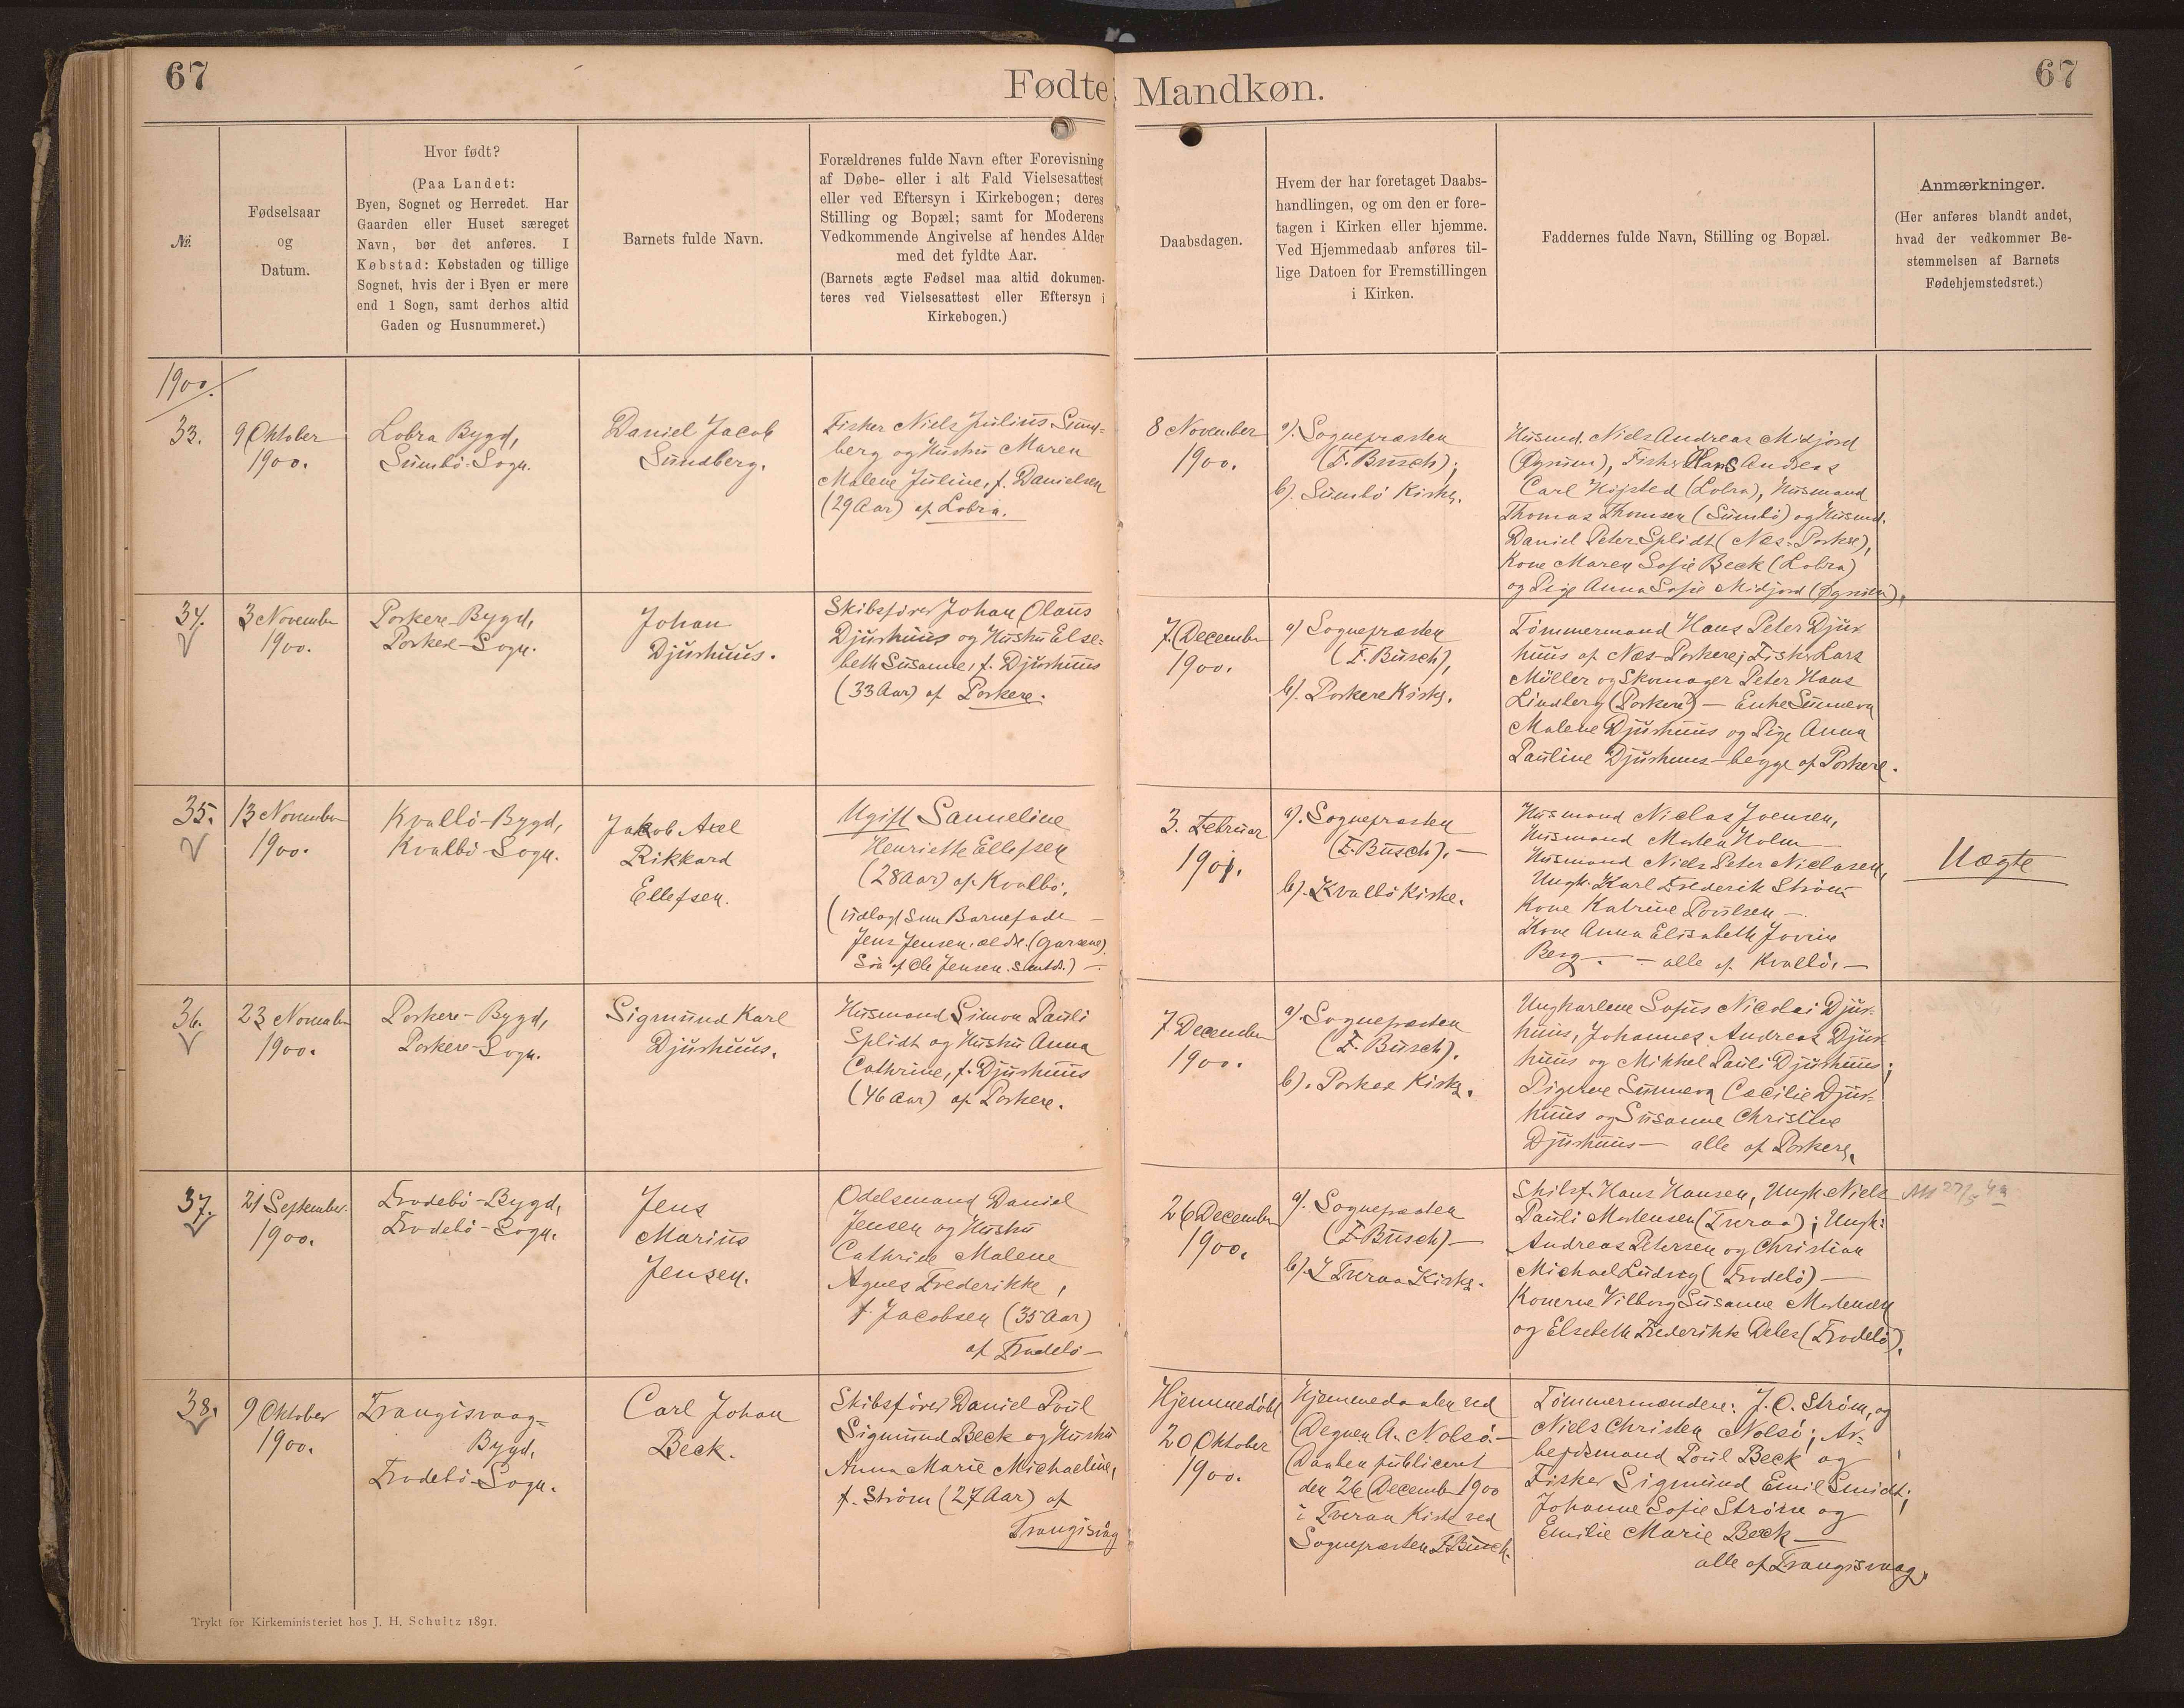 67
Fødte, Mandkøn.
67
№
Fødselsaar
og
Datum.
Hvor født?
(Paa Landet:
Byen, Sognet og Herredet. Har
Gaarden eller Huset særeget
Navn, bør det anføres. I
Købstad: Købstaden og tillige
Sognet, hvis der i Byen er mere
end 1 Sogn, samt derhos altid
Gaden og Husnummeret.)
Barnets fulde Navn.
Forældrenes fulde Navn efter Forevisning
af Døbe- eller i alt Fald Vielsesattest
eller ved Eftersyn i Kirkebogen; deres
Stilling og Bopæl; samt for Moderens
Vedkommende Angivelse af hendes Alder
med det fyldte Aar.
(Barnets ægte Fødsel maa altid dokumen-
teres ved Vielsesattest eller Eftersyn i
Kirkebogen.)
Daabsdagen.
Hvem der har foretaget Daabs-
handlingen, og om den er fore-
tagen i Kirken eller hjemme.
Ved Hjemmedaab anføres til-
lige Datoen for Fremstillingen
i Kirken.
Faddernes fulde Navn, Stilling og Bopæl.
Anmærkninger.
(Her anføres blandt andet,
hvad der vedkommer Be-
stemmelsen af Barnets
Fødehjemstedsret.)
1900.
33.
9 Oktober
1900.
Lobra Bygd,
Sumbö-Sogn.
Daniel Jacob
Sundberg.
Fisker Niels Julius Sund-
berg og Hustru Maren
Malene Juline, f. Danielsen
(29 Aar) af Lobra.
8 November
1900.
a). Sognepræsten
(F. Busch);
b). Sumbö Kirke.
Husmd. Niels Andreas Midjord
(Øgnum), Fisker Hans Andreas
Carl Højsted (Lobra), Husmand
Thomas Thomsen (Sumbö) og Husmd.
Daniel Peter Splidt (Næs-Porkere),
Kone Maren Sofie Beck (Lobra)
og Pige Anna Sofie Midjord (Øgnum).
34.
3 November
1900.
Porkere-Bygd,
Porkere-Sogn.
Johan
Djurhuus.
Skibsfører Johan Olaus
Djurhuus og Hustru Else-
beth Susanne, f. Djurhuus
(33 Aar) af Porkere.
7 December
1900.
a) Sognepræsten
(F. Busch),
b). Porkere Kirke.
Tömmermand Hans Peter Djur-
huus af Næs-Porkere; Fisker Lars
Müller og Skomager Peter Hans
Lindberg (Porkere) — Enke Sunneva
Malene Djurhuus og Pige Anna
Pauline Djurhuus — begge af Porkere.
35.
13 November
1900.
Kvalbö-Bygd,
Kvalbö-Sogn.
Jakob Axel
Rikkard
Ellefsen.
Ugift Sanneline
Henriette Ellefsen
(28 Aar) af Kvalbö.
(udlagt som Barnefader —
Jens Jensen, ældr.
Sön af Ole Jensen
3. Februar
1901.
a). Sognepræsten
(F. Busch). —
b). Kvalbö Kirke.
Husmand Niclas Joensen,
Husmand Morten Holm —
Husmand Niels Peter Niclasen,
Ungk. Karl Frederik Ström
Kone Katrine Poulsen —
Kone Anna Elisabeth Jovine
Berg. — alle af Kvalbö. —
Uægte
36.
23 November
1900.
Porkere-Bygd,
Porkere-Sogn.
Sigmund Karl
Djurhuus.
Husmand Simon Pauli
Splidt og Hustru Anna
Cathrine, f. Djurhuus
(46 Aar) af Porkere.
7 December
1900.
a). Sognepræsten
(F. Busch).
b). Porkere Kirke.
Ungkarlene Sofus Nicolai Djur-
huus, Johannes Andreas Djur-
huus og Mikkel Pauli Djurhuus;
Pigerne Sunneva Cæcilie Djur-
huus og Susanne Christine
Djurhuus — alle af Porkere.
37.
21 September
1900.
Frodebö-Bygd,
Frodebö-Sogn.
Jens
Marius
Jensen.
Odelsmand Daniel
Jensen og Hustru
Cathrine Malene
Agnes Frederikke,
f. Jacobsen (35 Aar)
af Frodebö —
26 December
1900.
a). Sognepræsten
(F. Busch) —
b). I Tveraa Kirke.
Skibsf. Hans Hansen, Ungk. Niels
Pauli Mortensen (Tveraa); Ungk:
Andreas Petersen og Christian
Michael Ludvig (Frodebö) —
Konerne Vilborg Susanne Mortensen
og Elsebeth Frederikke Deles (Frodebö).
38.
9 Oktober
1900.
Trangisvaag-
Bygd,
Frodebö-Sogn.
Carl Johan
Beck.
Skibsfører Daniel Poul
Sigmund Beck og Hustru
Anna Marie Michaeline,
f. Ström (27 Aar) af
Trangisvåg
Hjemmedöbt
20 Oktober
1900.
Hjemmedaaben ved
Degnen A. Nolsö. —
Daaben publiceret
den 26 December 1900
i Tveraa Kirke ved
Sognepræsten F. Busch.
Tömmermændene: J. O. Ström, og
Niels Christen Nolsö; Ar-
bejdsmand Poul Beck og
Fisker Sigmund Emil Smidt;
Johanne Sofie Ström og
Emilie Marie Beck —
alle af Trangisvaag.
Trykt for Kirkeministeriet hos J. H. Schultz 1891.